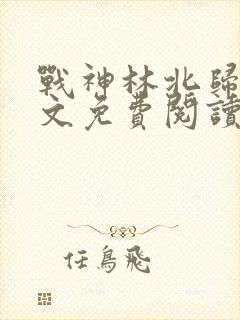 戰神林北歸
文免費閱讀
任鳥飛